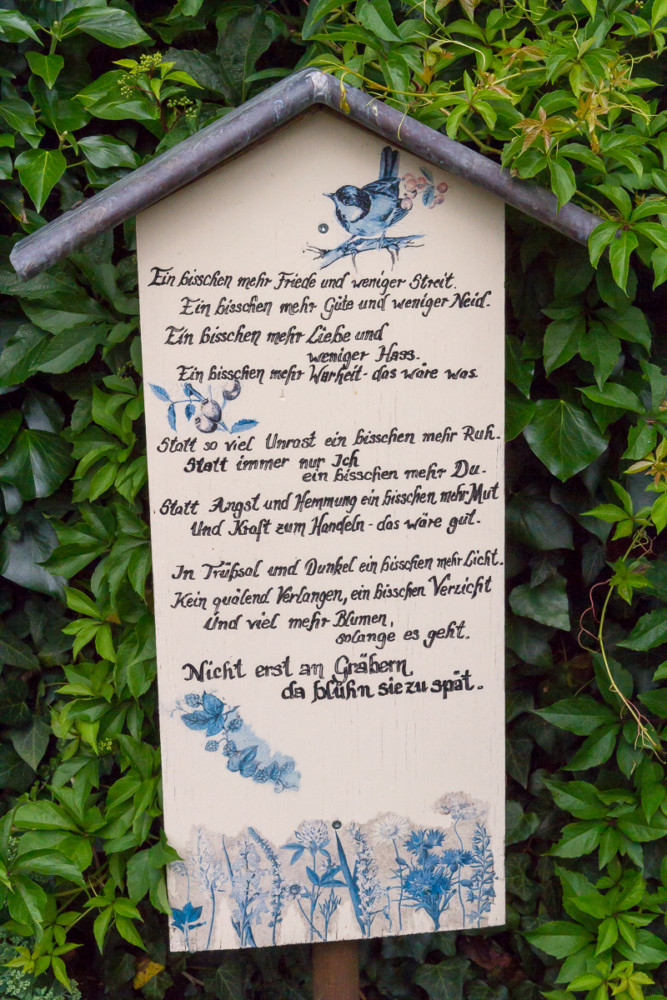 Ein bisschen mehr Friede und weniger Streit.
Ein bisschen mehr Güte und weniger Neid.
Ein bisschen mehr Liebe und
weniger Hass.
Ein bisschen mehr Warheit - das wäre was.
Statt so viel Unrast ein bisschen mehr Ruh.
Statt immer nur Ich
ein bisschen mehr Du.
Statt Angst und Hemmung ein bisschen mehr Mut
Und Kraft zum Handeln - das wäre gut.
In Trübsal und Dunkel ein bisschen mehr Licht.
Kein quälend Verlangen, ein bisschen Verzicht
Und viel mehr Blumen,
solange es geht.
Nicht erst an Gräbern
da blühn sie zu spät.